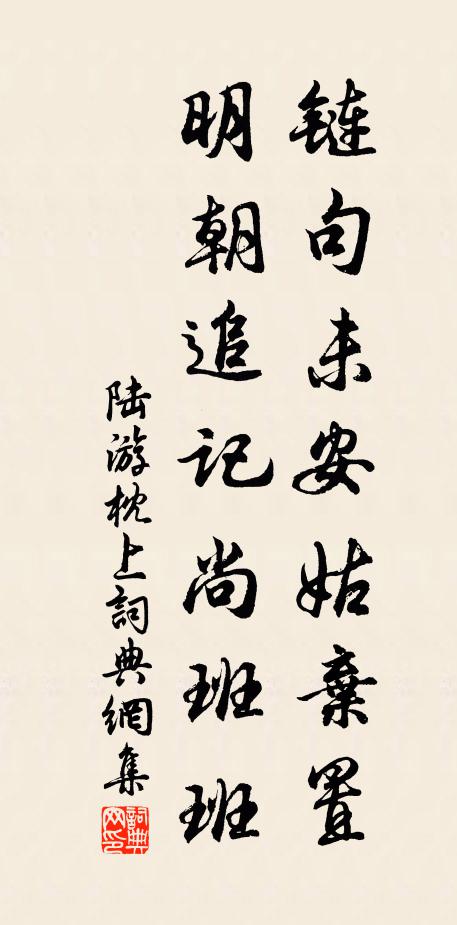 鏈句未安姑棄置
明朝追记尚班班
陆游枕上詞典網集
詞典
网印